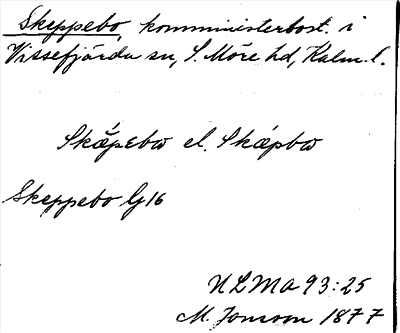 Skeppebo, komministerbost. i
Vissefjärda sn, S. Möre hd, Kalm. l.
Skǻpebω el. Skápbω
Skeppebo G16
ULMA 93:25
M. Jonsson 1877